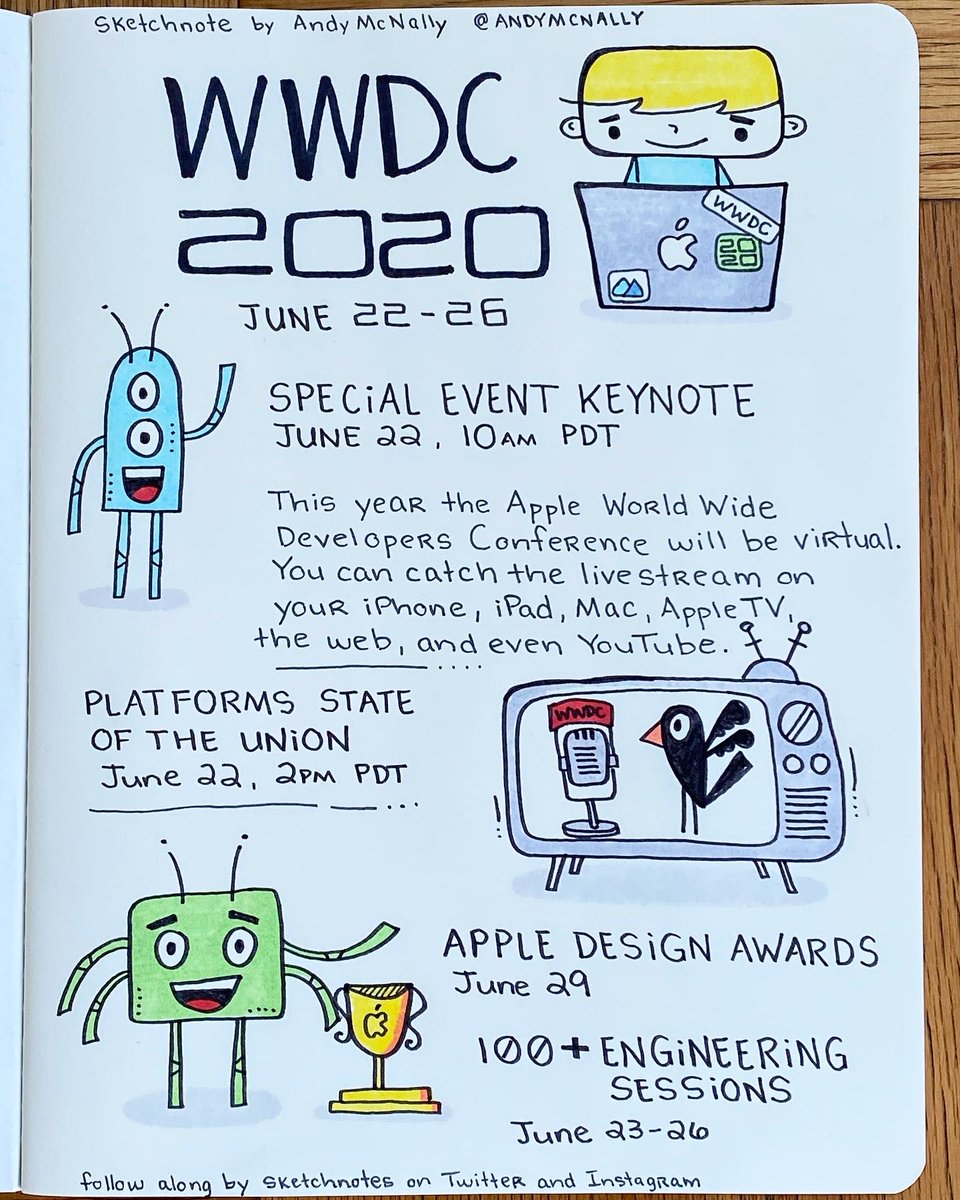 Sketchnote by Andy McNally @ANDYMCNALLY
WWDC
2020
WWDC
2020
JUNE 22-26
SPECiAL EVENT KEYNOTE
JUNE 22, 10AM PDT
This year the Apple World Wide
Developers Conference will be virtual.
You can catch the livestream on
your iPhone, iPad, Mac, Apple TV,
the web, and even YouTube.
PLATFORMS STATE
OF THE UNiON
June 22, 2PM PDT
WWDC
APPLE DESiGN AWARDS
June 29
100+ ENGiNEERiNG
SESSiONS
June 23-26
follow along by sketchnotes on Twitter and Instagram